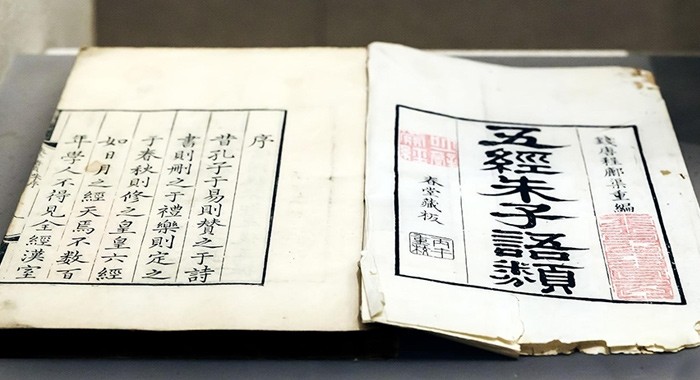 錢唐程渠重編
五經朱子語類
春堂藏板
序
昔孔子于易則贊之于詩
書則刪之于禮樂則定之
于春秋則修之皇皇六經
如日月之經天焉不數百
年學人不得見全經漢室